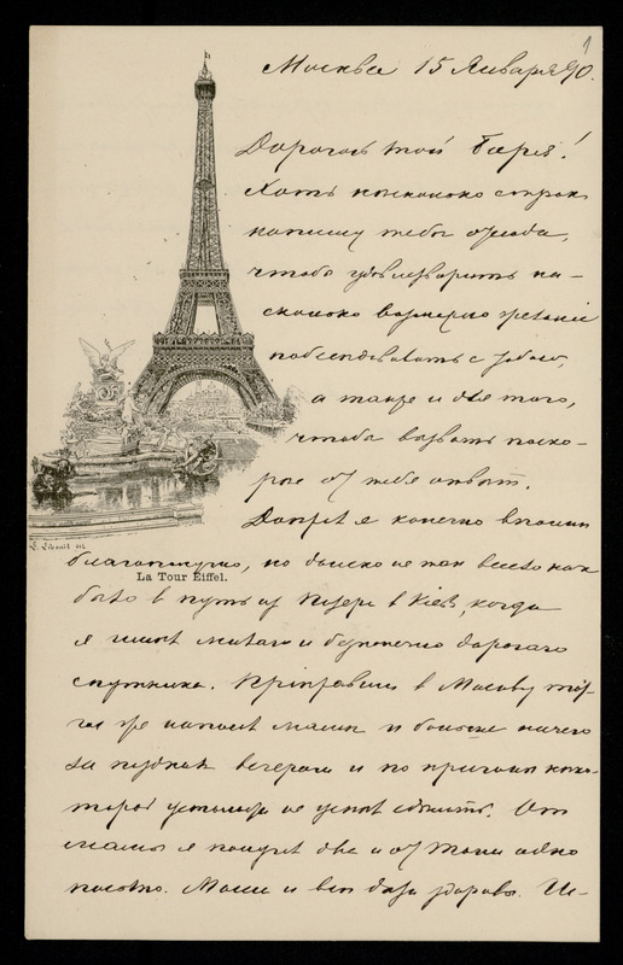 1
Москва 15 Января 90.
Дорогой мой Боря!
Хоть несколько строк
напишу тебе отсюда,
чтобы удовлетворить на-
сколько возможно желание
побеседовать с тобою,
а также и для того,
чтобы вызвать поско-
рее от тебя отвѣт.
Доѣхал я конечно вполнѣ
L. Libonis del.
благополучно, но далеко не так весело как
La Tour Eiffel.
было в пути из Питера в Кіев, когда
я имѣл милаго и безконечно дорогаго
спутника. Пріѣхавши в Москву тот-
час же написал мамѣ и больше ничего
за поздним вечером и по причинѣ нѣко-
торой усталости не успѣл сдѣлать. От
мамы я получил два и от Тани одно
письмо. Мама и всѣ дома здоровы. Ис-